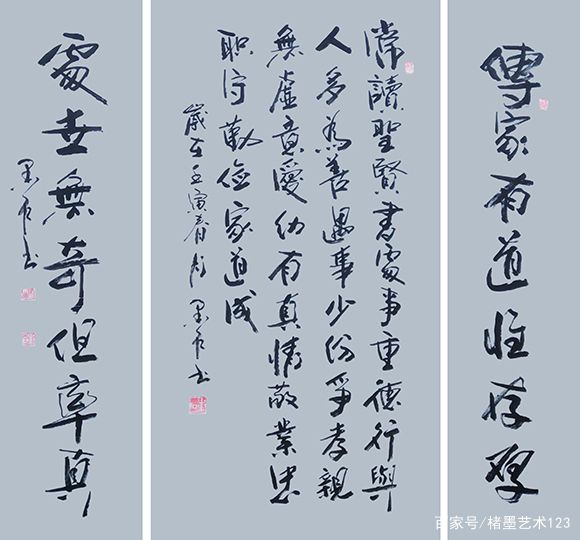 傳家有道惟存厚
常讀聖賢書處事重德行與
人多為善遇事少份爭孝親
無虛意愛幼有真情敬業忠
职守勤俭家道成
歲在壬寅春 墨 书
處世無奇但率真
墨 书
百家号/楮墨艺术123